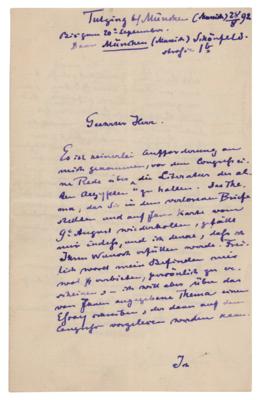 Tutzing b/ München (Munich) 24/8 92
Bis zum 20ten September.
Dann München (Munich) Schönfeld-
straße 1b
Geehrter Herr.
Es ist keinerlei Aufforderung an
mich gekommen, vor dem Congresse
eine Rede über die Literatur des al-
ten Aegypten zu halten. Das The-
ma, das Sie in dem verlorenen Briefe
stellten und auf Ihrer Karte vom
9t August wiederholten, gefällt
mir indeß, und ich denke, daß
Ihr Wunsch erfüllt werden Frei-
lich wird mein Befinden mir
verbieten, persönlich zu er-
scheinen, – ich will aber über das
von Ihnen angegebene Thema einen
Essay schreiben, der dann auf dem
Congress vorgelesen werden kann.